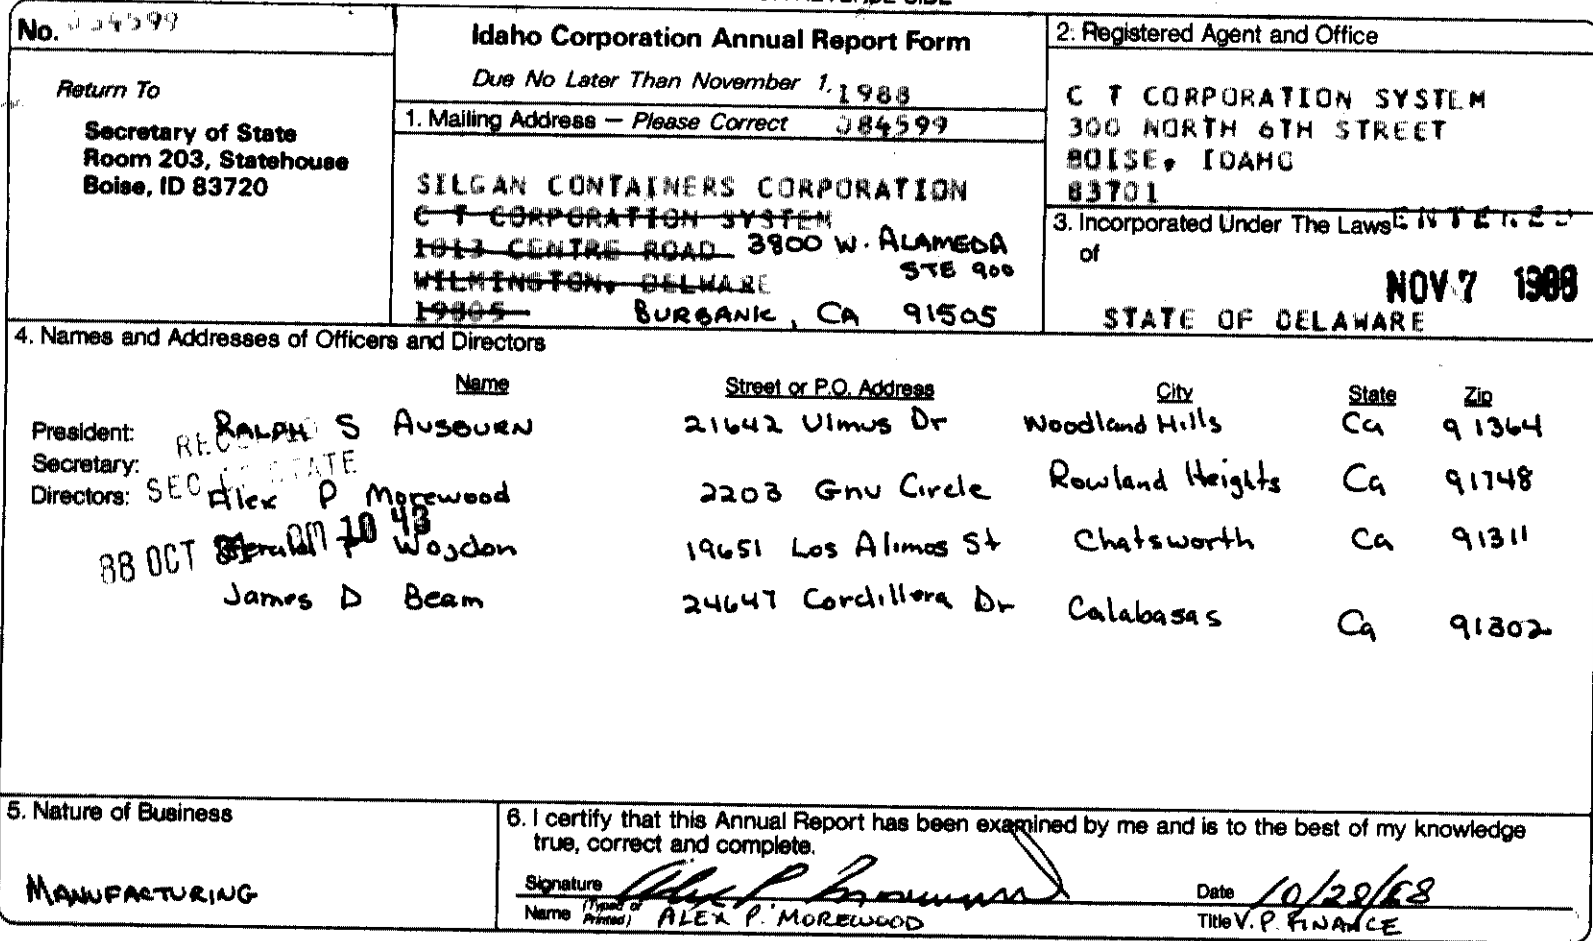 No.
Return To
Secretary of State
Room 203, Statehouse
Boise, ID 83720
Idaho Corporation Annual Report Form
Due No Later Than November 1, 1988
1. Mailing Address — Please Correct 084599
SILGAN CONTAINERS CORPORATION
C T CORPORATION SYSTEM
1013 CENTRE ROAD 3800 W. ALAMEDA
STE 900
WILMINGTON, DELWARE
19805 BURBANK, CA 91505
2. Registered Agent and Office
C T CORPORATION SYSTEM
300 NORTH 6TH STREET
BOISE, IDAHO
83701
3. Incorporated Under The Laws ENTERED
of
NOV 7 1988
STATE OF DELAWARE
4. Names and Addresses of Officers and Directors
Name Street or P.O. Address City State Zip
President: RALPH S AUSBURN 21642 Ulmus Dr Woodland Hills Ca 91364
Secretary:
SEC STATE
Directors: Alex P Morewood 2203 Gnu Circle Rowland Heights Ca 91748
88 OCT AM 10 43
Wojdon 19651 Los Alimos St Chatsworth Ca 91311
James D Beam 24647 Cordillera Dr Calabasas Ca 91302
5. Nature of Business
MANUFACTURING
6. I certify that this Annual Report has been examined by me and is to the best of my knowledge
true, correct and complete.
Signature Date 10/28/88
Name (Typed or Printed) ALEX P. MOREWOOD Title V.P. FINANCE